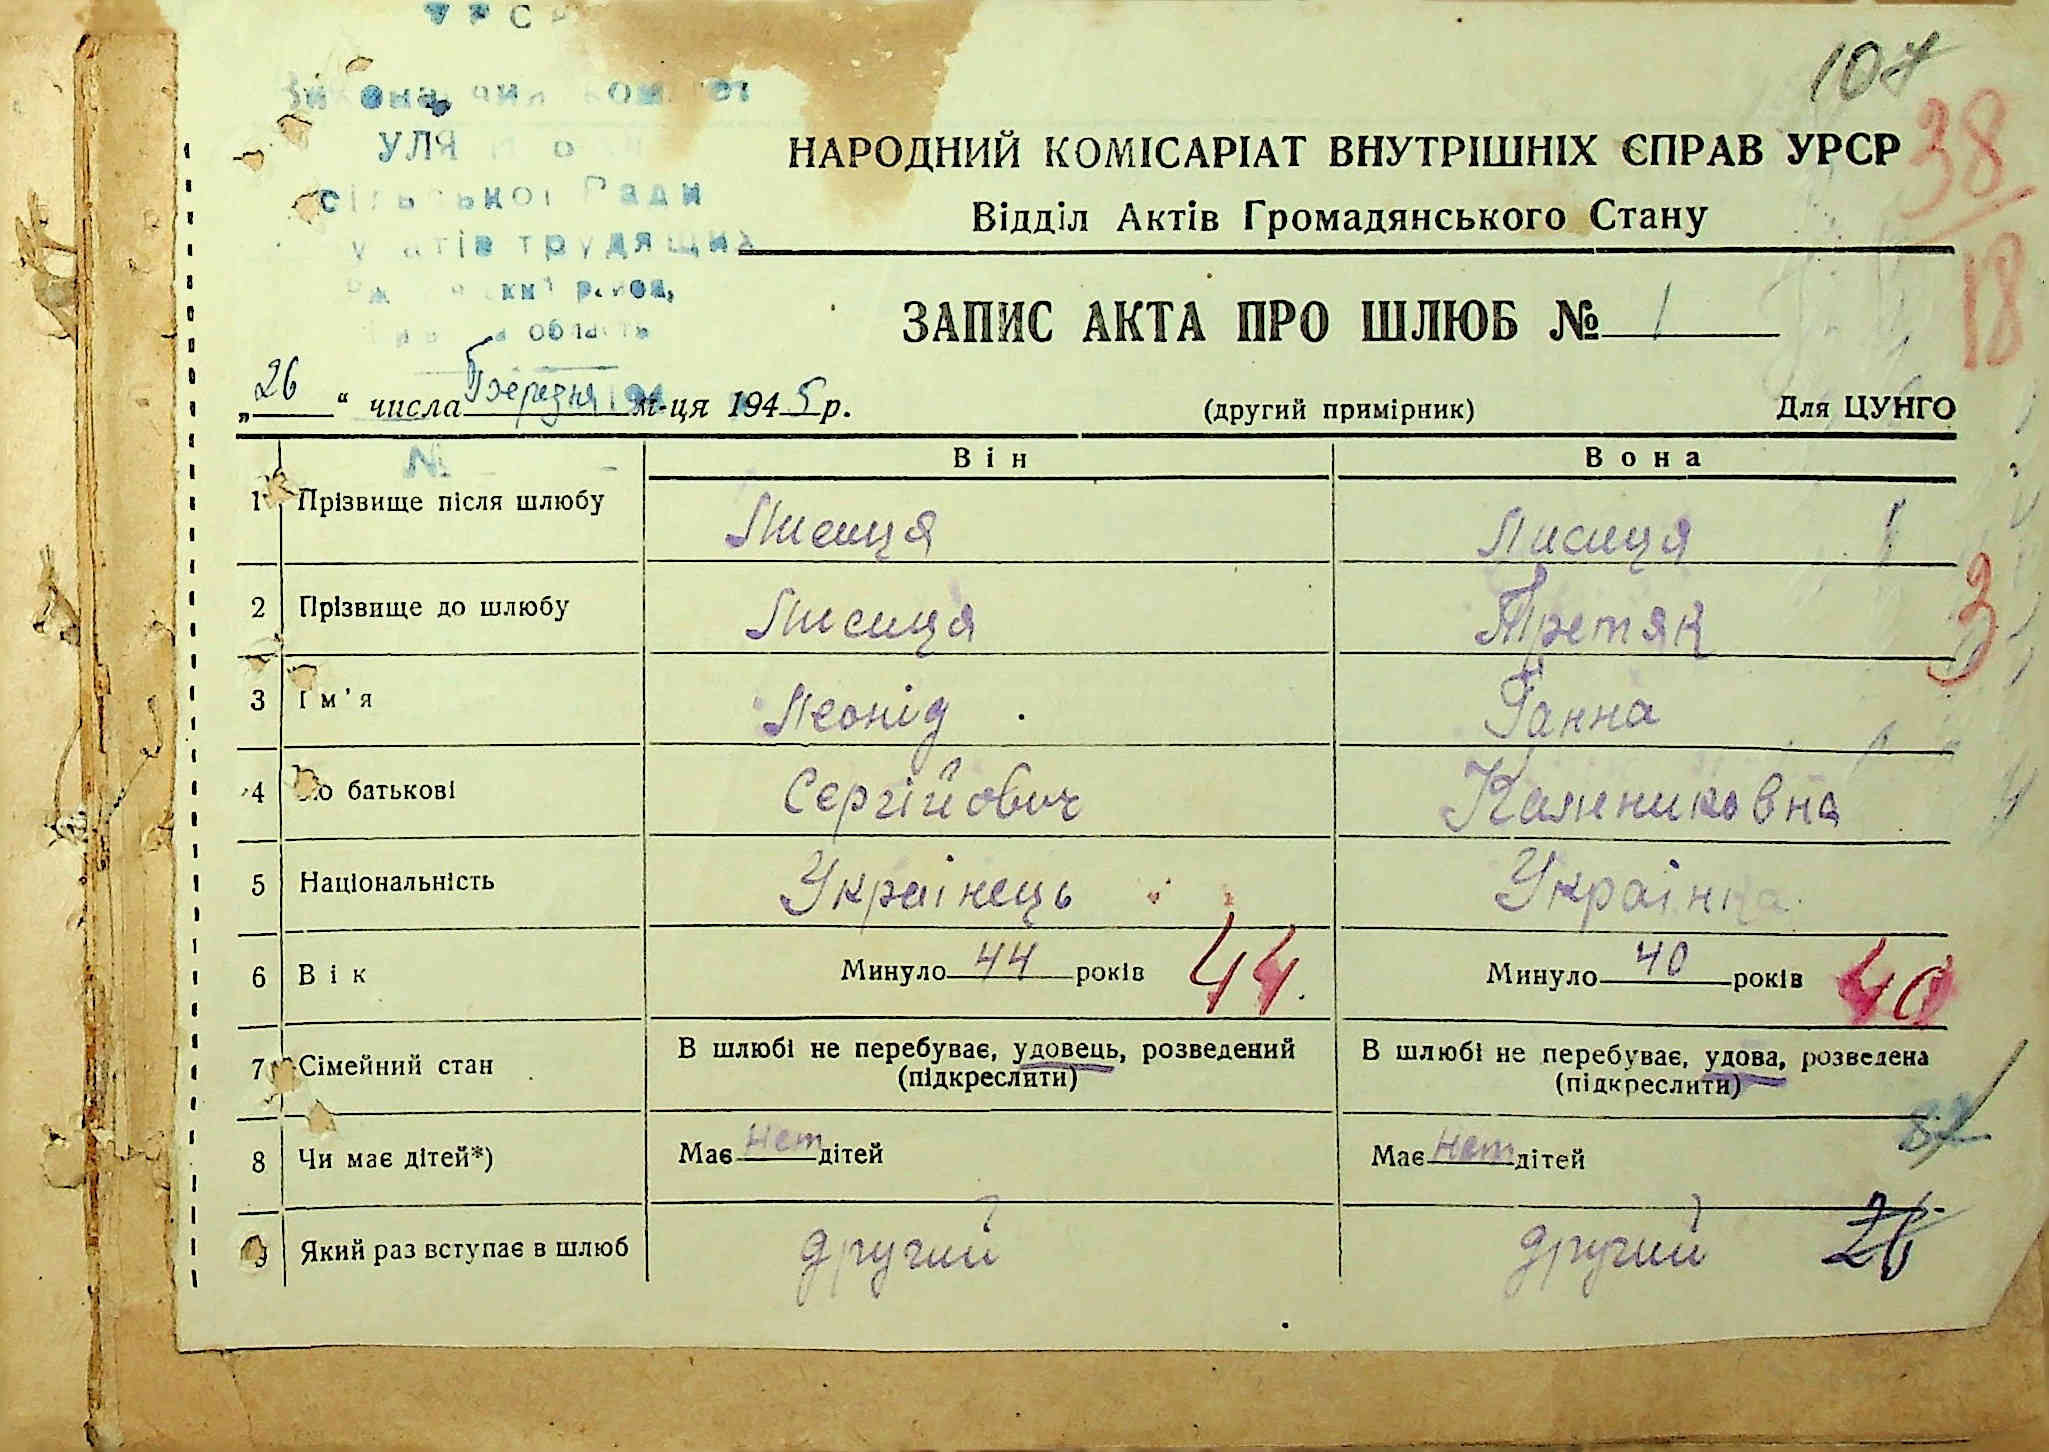 УРСР
107
38
18
сільської Ради
трудящих
НАРОДНИЙ КОМІСАРІАТ ВНУТРІШНІХ ЄПРАВ УРСР
Відділ Актів Громадянського Стану
ЗАПИС АКТА ПРО ШЛЮБ № 1
„26“ числа Березня м-ця 1945 р. (другий примірник) Для ЦУНГО
№
Він Вона
1 Прізвище після шлюбу Лисиця Лисиця
2 Прізвище до шлюбу Лисиця Третяк
3
3 Ім'я Леонід Ганна
4 По батькові Сергійович Калениковна
5 Національність Українець Українка
6 Вік Минуло 44 років 44 Минуло 40 років 40
7 Сімейний стан В шлюбі не перебуває, удовець, розведений В шлюбі не перебуває, удова, розведена
(підкреслити) (підкреслити)
8 Чи має дітей*) Має нет дітей Має нет дітей
9 Який раз вступає в шлюб другий другий 26